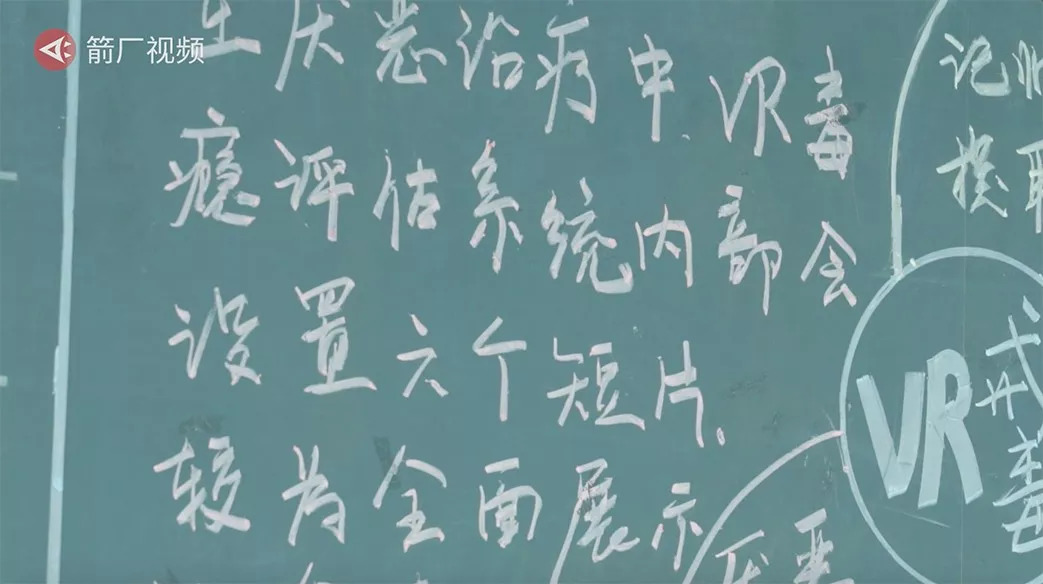 箭厂视频
生厌恶治疗中，VR毒
瘾评估系统内部会
设置六个短片，
较为全面展示
记忆
提取
VR戒毒
厌恶